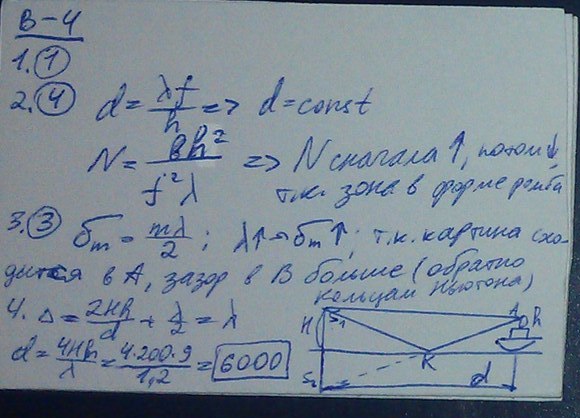 В-4
1. ①
2. ④ d = λf/h => d = const
N = bh²/f²λ => N сначала ↑, потом ↓
т.к. зона в форме ромба
3. ③ δm = mλ/2 ; λ↑ → δm↑ ; т.к. картина схо-
дится в А, зазор в В больше (обратно
кольцам Ньютона)
4. Δ = 2Hh/d + λ/2 = λ
d = 4Hh/λ = 4·200·9/1,2 = 6000
H S₁ A h
S₂ K d